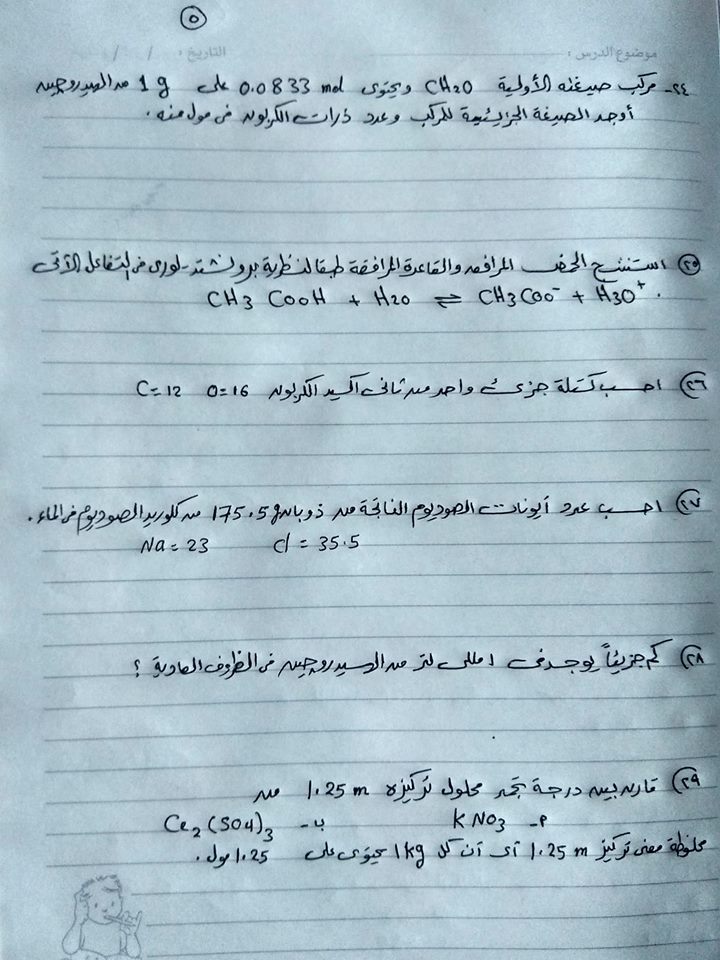 ٥
موضوع الدرس : التاريخ : / /
٢٤- مركب صيغته الأولية CH2O ويحتوى 0.0833 mol على 1 g من الهيدروجين
أوجد الصيغة الجزائيية للمركب وعدد ذرات الكربون فى مول منه .
٢٥ استنتج الحمض المرافق والقاعدة المرافقة طبقا لنظرية برونشتد - لورى فى التفاعل الآتى
CH3 COOH + H2O ⇌ CH3COO⁻ + H3O⁺ .
٢٦ احسب كتلة جزئ واحد من ثانى اكسيد الكربون C=12 O=16
٢٧ احسب عدد أيونات الصوديوم الناتجة من ذوبان 175.5g من كلوريد الصوديوم فى الماء .
Na = 23 Cl = 35.5
٢٨ كم جزيئاً يوجد فى ١ مللى لتر من الهيدروجين فى الظروف العادية ؟
٢٩ قارن بين درجة تجمد محلول تركيزه 1.25 m من
٢- KNO3 ب- Ce2(SO4)3
ملحوظة معنى تركيز 1.25 m أى أن كل 1kg يحتوى على 1.25 مول .